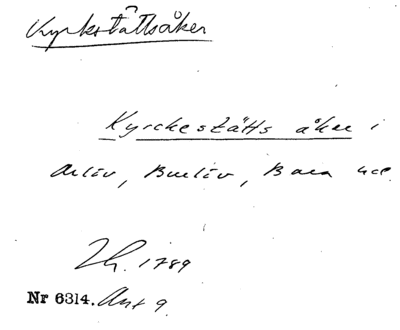 Kyrkstättsåker
Kyrckestätts åker i
Arlöv, Burlöv, Bara hd
Lh. 1789
Nr 6314. Ant 9.